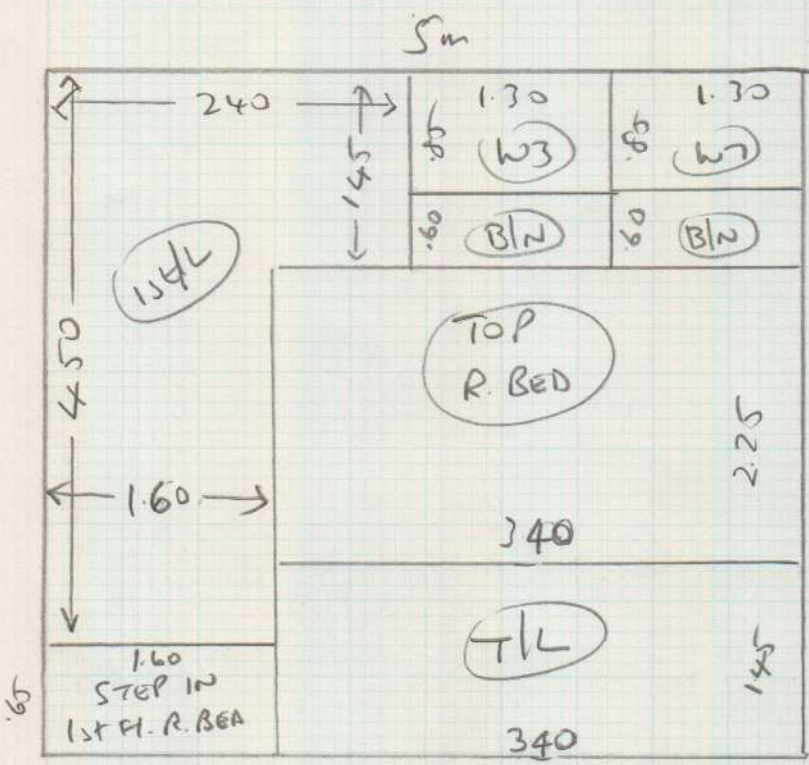 5m
240
145
1.30
.85
W3
1.30
.85
W7
.60
B/N
.60
B/N
1st/L
450
TOP
R. BED
2.25
1.60
340
T/L
145
340
1.60
STEP IN
1st Fl. R. BED
.65